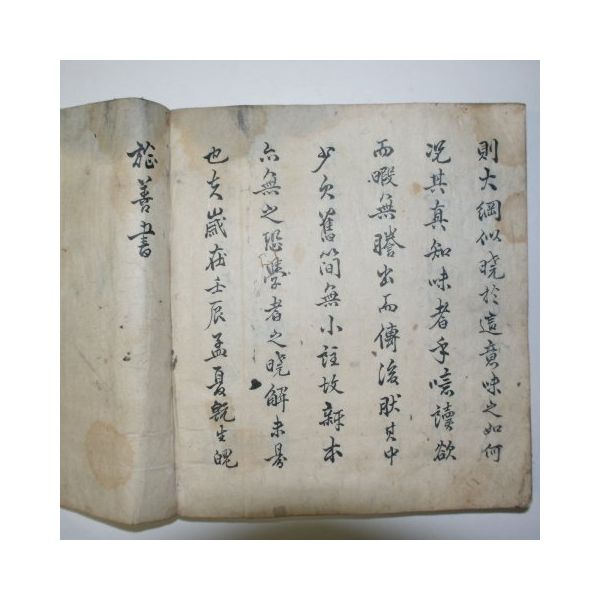 則大綱似曉於這意味之如何
況其真知味者乎噫讀欲
而暇無謄出而傳後肰其中
少欠舊簡無小註故新本
亦無之恐學者之曉解未易
也夫歲在壬辰孟夏旣生魄
善書